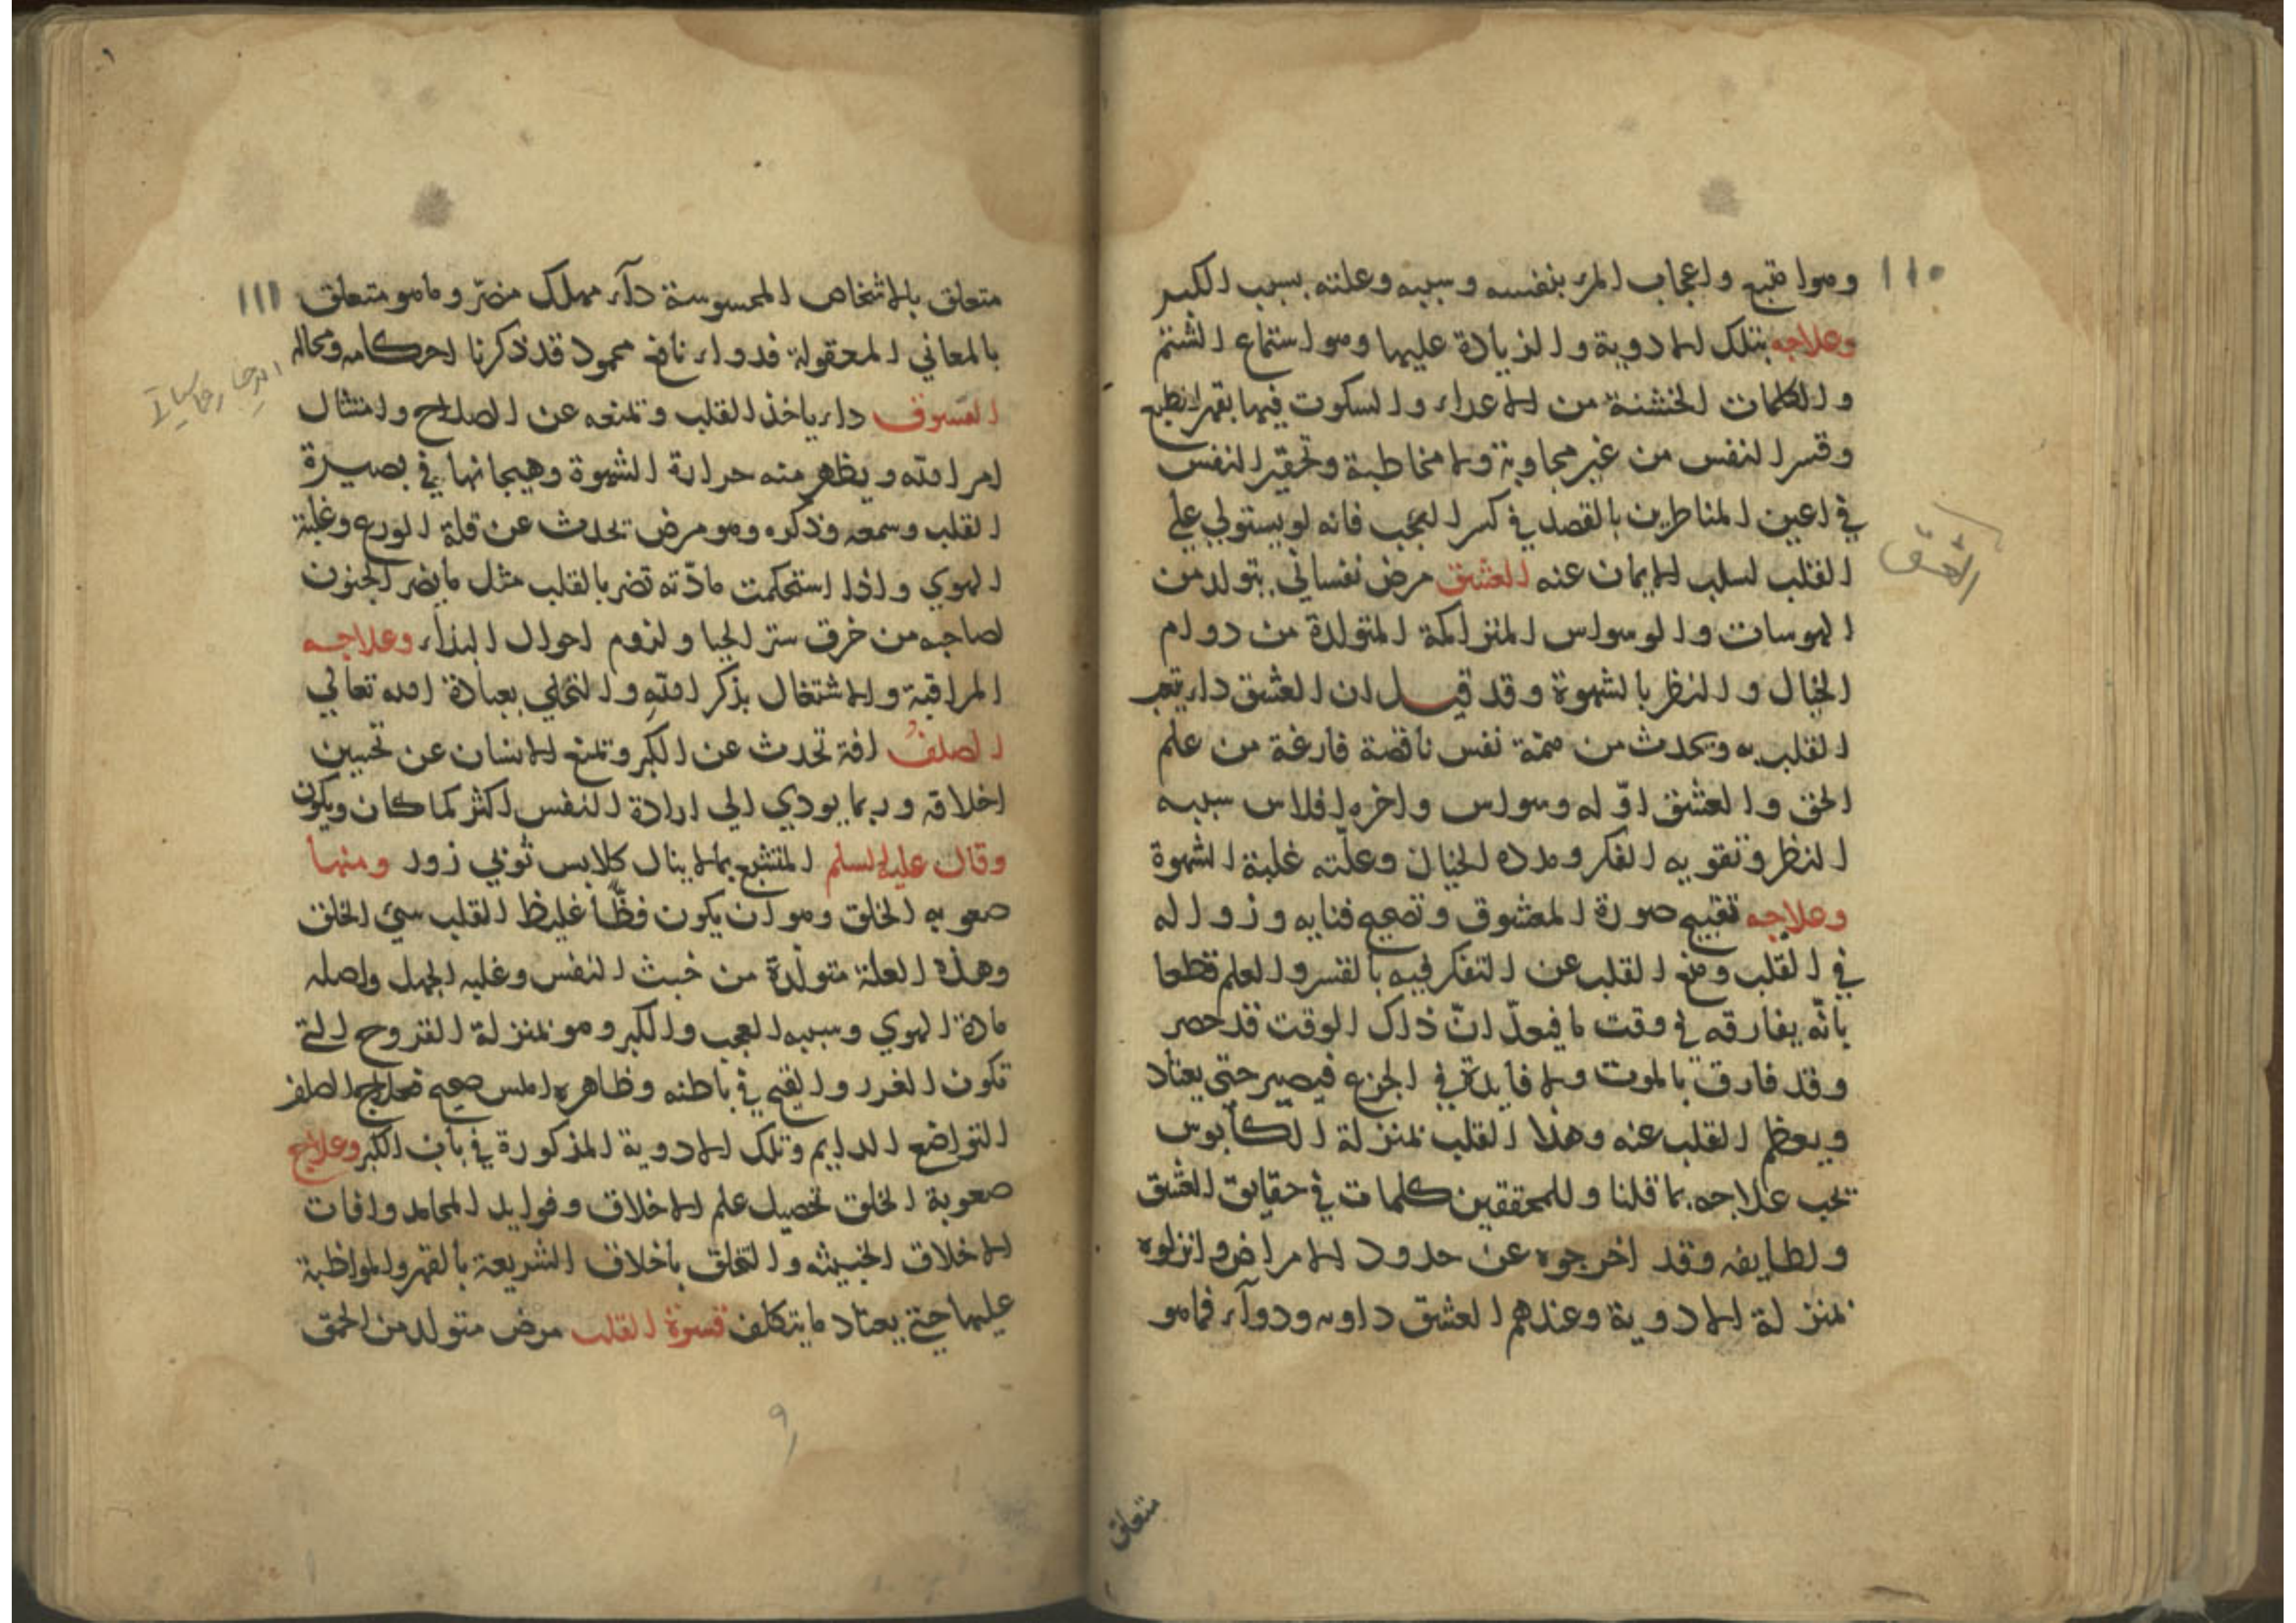 ١١٠
وهو اقبح واعجاب المرء بنفسه وسببه وعلته بسبب الكبر
وعلاجه بتلك الادوية والزيادة عليها وهو استماع الشتم
والكلمات الخشنة من الاعداء والسكوت فيها بقهر الطبع
وقسر النفس من غير مجاوبة ولا مخاطبة وتحقير النفس
في اعين المناظرين بالقصد في كسر العجب فانه لو يستولي علي
القلب لسلب الايمان عنه العشق مرض نفساني يتولد من
الهوسات والوسواس المتراكمة المتولدة من دوام
الخيال والنظر بالشهوة وقد قيل ان العشق داء يتعب
القلب به ويحدث من همة نفس ناقصة فارغة من علم
الحق والعشق اوّله وسواس واخره افلاس سببه
النظر وتقويه الفكر ومدده الخيال وعلّته غلبة الشهوة
وعلاجه تقبيح صورة المعشوق وتصحيح فنايه وزواله
في القلب ومنع القلب عن التفكر فيه بالقسر والعلم قطعا
بانّه يفارقه في وقت ما فيعدّ انّ ذلك الوقت قد حضر
وقد فارق بالموت ولا فايدة في الجزع فيصير حتي يعتاد
ويعظم القلب عنه وهذا القلب بمنزلة الكابوس
تجب علاجه بما قلنا وللمحققين كلمات في حقايق العشق
ولطايفه وقد اخرجوه عن حدود الامراض وانزلوه
بمنزلة الادوية وعندهم العشق داوه ودوآء فما هو
العشق
متعلق
١١١
متعلق بالاشخاص المحسوسة دآء مهلك مضرّ وما هو متعلق
بالمعاني المعقولة فدواء نافع محمود قد ذكرنا احكامه ومحاله
الفسوق داء ياخذ القلب وتمنعه عن الصلاح وامتثال
امر الله ويظهر منه حرارة الشهوة وهيجانها في بصيرة
القلب وسمعه وذكره وهو مرض تحدث عن قلة الورع وغلبة
الهوي واذا استحكمت مادّته تضر بالقلب مثل ما يضر الجنون
لصاحبه من خرق ستر الحيا ولزوم احوال البذاء وعلاجه
المراقبة والاشتغال بذكر الله والتحلي بعبادة الله تعالي
الصلف افة تحدث عن الكبر وتمنع الانسان عن تحسين
اخلاقه وربما يودي الي ارادة النفس اكثر كما كان ويكون
وقال عليه السلم المتشبع بما لا ينال كلابس ثوبي زور ومنها
صعوبه الخلق وهو ان يكون فظّا غليظ القلب سيئ الخلق
وهذه العلة متولّدة من خبث النفس وغلبه الجهل واصله
مادة الهوي وسببه العجب والكبر وهو بمنزلة القروح التي
تكون الغرر والقيح في باطنه وظاهره املس صحيح فعلاج الصلف
التواضع الدايم وتلك الادوية المذكورة في باب الكبر وعلاج
صعوبة الخلق تحصيل علم الاخلاق وفوايد المحامد وافات
الاخلاق الخبيثه والتخلق باخلاق الشريعة بالقهر والمواظبة
عليها حتي يعتاد ما يتكلف قسوة القلب مرض متولد من الحمق